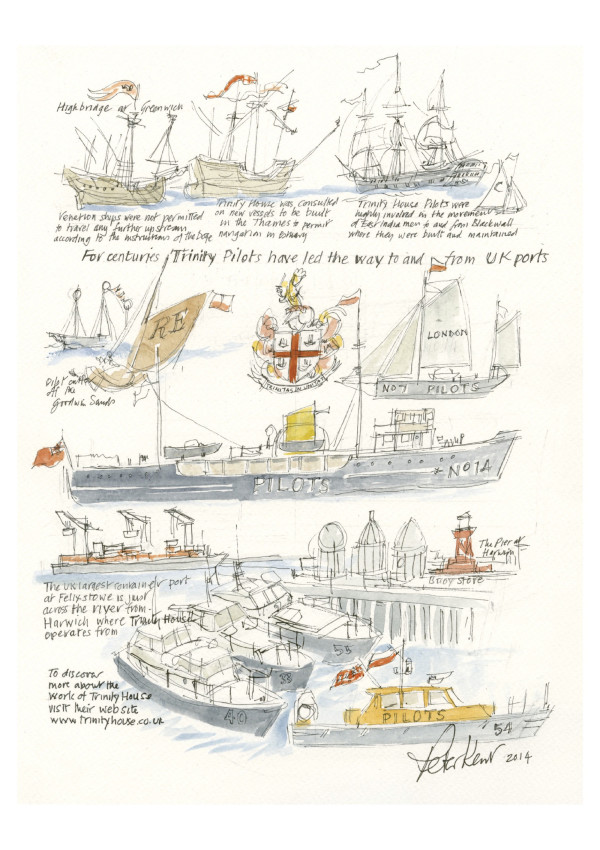 High bridge at Greenwich
Venetian ships were not permitted
to travel any further upstream
according to the instructions of the Doge
Trinity House was consulted
on new vessels to be built
in the Thames to permit
navigation in Estuary
Trinity House Pilots were
highly involved in the movement
of East India men to and from Blackwall
where they were built and maintained
For centuries Trinity Pilots have led the way to and from UK ports
RE
Pilot cutter
off the
Goodwin Sands
TRINITAS IN UNITATE
LONDON
NO 7 PILOTS
PILOTS
NO 1A
The UK largest container port
at Felixstowe is just
across the river from
Harwich where Trinity House
operates from
The Pier at
Harwich
Buoy store
To discover
more about the
work of Trinity House
visit their website
www.trinityhouse.co.uk
40
55
PILOTS
54
Peter Kent 2014